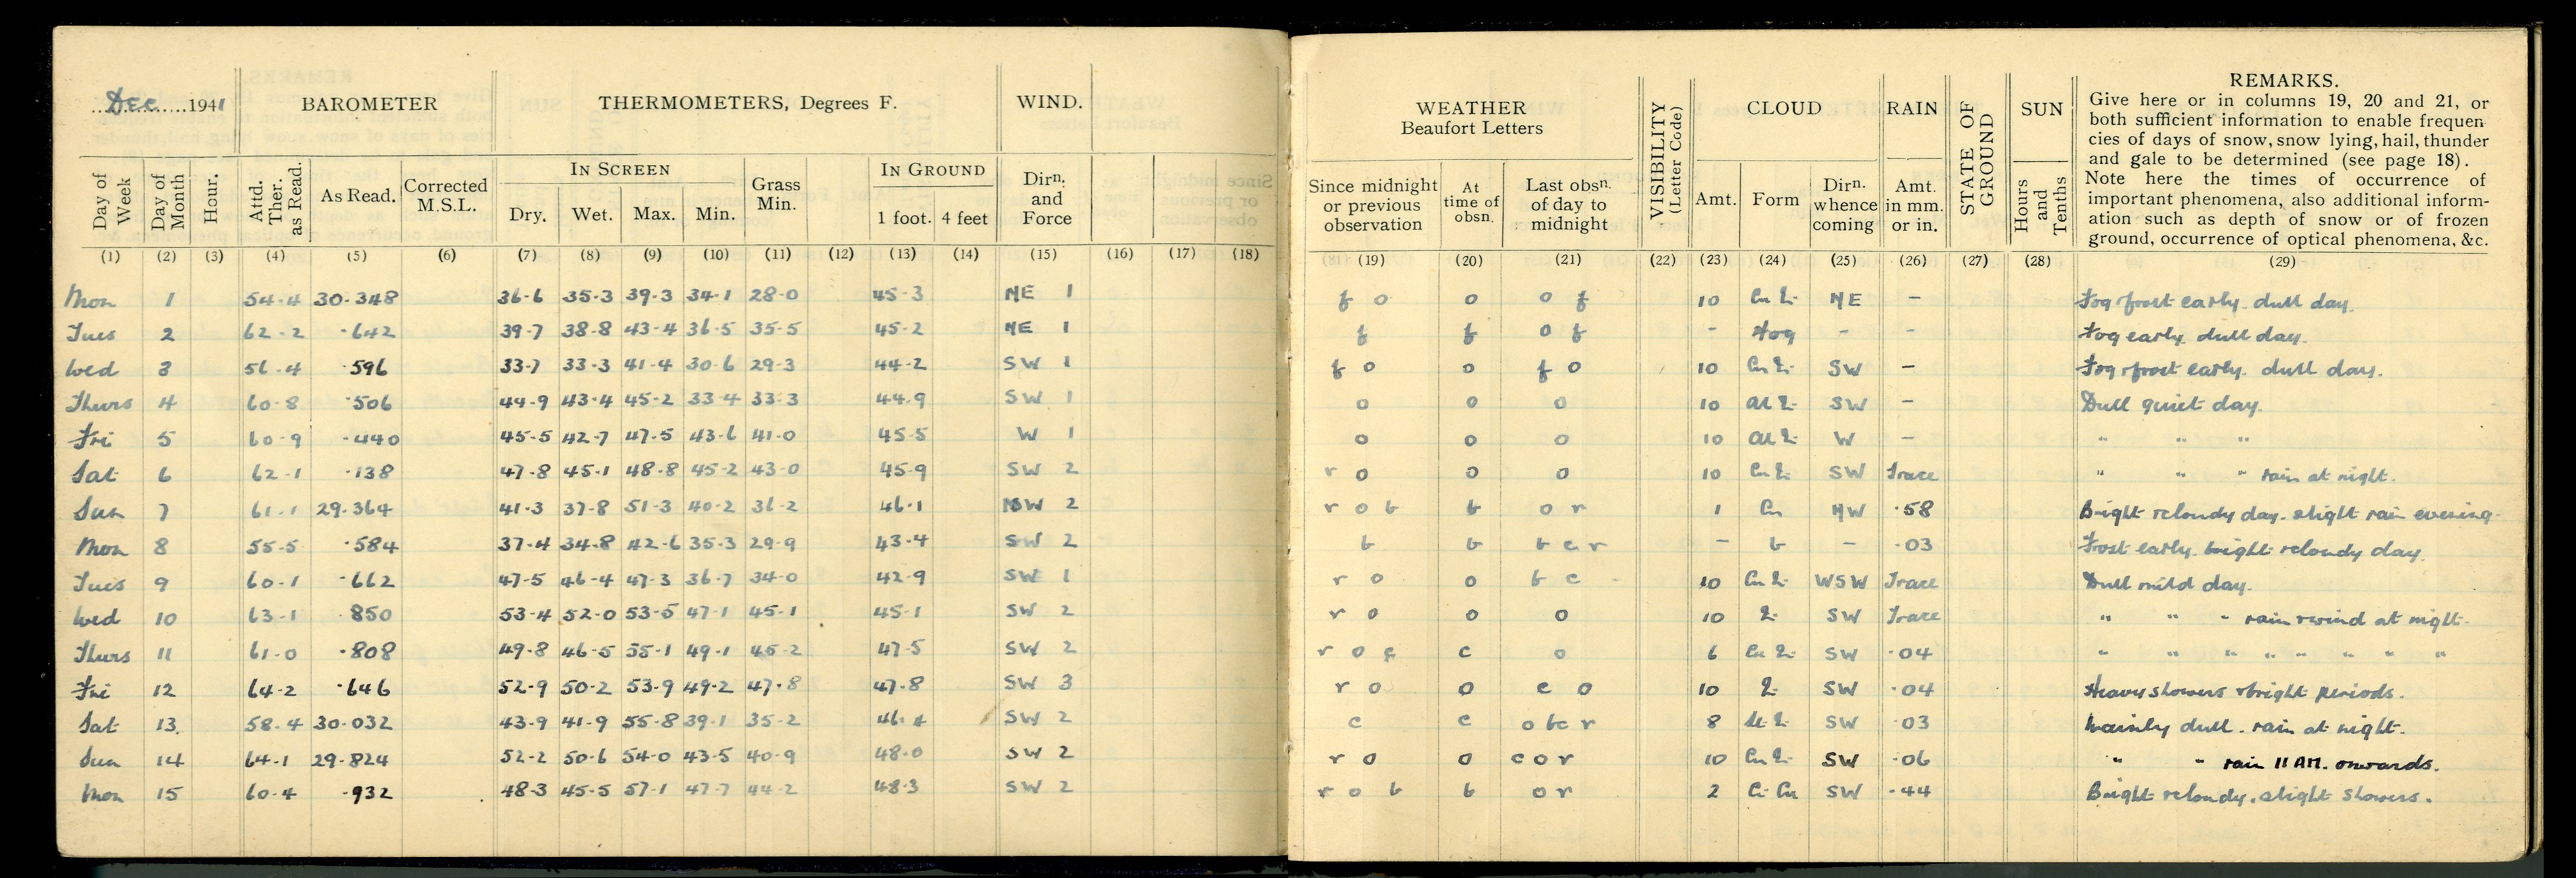 Dec 1941
BAROMETER
THERMOMETERS, Degrees F.
WIND.
Day of Week
Day of Month
Hour.
Attd. Ther. as Read.
As Read.
Corrected M.S.L.
IN SCREEN
Dry. Wet. Max. Min.
Grass Min.
IN GROUND
1 foot. 4 feet
Dirn. and Force
(1) (2) (3) (4) (5) (6) (7) (8) (9) (10) (11) (12) (13) (14) (15) (16) (17) (18)
Mon 1 54.4 30.348 36.6 35.3 39.3 34.1 28.0 45.3 NE 1
Tues 2 62.2 .642 39.7 38.8 43.4 36.5 35.5 45.2 NE 1
Wed 3 56.4 .596 33.7 33.3 41.4 30.6 29.3 44.2 SW 1
Thurs 4 60.8 .506 44.9 43.4 45.2 33.4 33.3 44.9 SW 1
Fri 5 60.9 .440 45.5 42.7 47.5 43.6 41.0 45.5 W 1
Sat 6 62.1 .138 47.8 45.1 48.8 45.2 43.0 45.9 SW 2
Sun 7 61.1 29.364 41.3 37.8 51.3 40.2 36.2 46.1 NW 2
Mon 8 55.5 .584 37.4 34.8 42.6 35.3 29.9 43.4 SW 2
Tues 9 60.1 .662 47.5 46.4 47.3 36.7 34.0 42.9 SW 1
Wed 10 63.1 .850 53.4 52.0 53.5 47.1 45.1 45.1 SW 2
Thurs 11 61.0 .808 49.8 46.5 55.1 49.1 45.2 47.5 SW 2
Fri 12 64.2 .646 52.9 50.2 53.9 49.2 47.8 47.8 SW 3
Sat 13. 58.4 30.032 43.9 41.9 55.8 39.1 35.2 46.4 SW 2
Sun 14 64.1 29.824 52.2 50.6 54.0 43.5 40.9 48.0 SW 2
Mon 15 60.4 .932 48.3 45.5 57.1 47.7 44.2 48.3 SW 2
WEATHER
Beaufort Letters
Since midnight or previous observation
At time of obsn.
Last obsn. of day to midnight
VISIBILITY (Letter Code)
CLOUD
Amt. Form
Dirn. whence coming
RAIN
Amt. in mm. or in.
STATE OF GROUND
SUN
Hours and Tenths
REMARKS.
Give here or in columns 19, 20 and 21, or
both sufficient information to enable frequen-
cies of days of snow, snow lying, hail, thunder
and gale to be determined (see page 18).
Note here the times of occurrence of
important phenomena, also additional inform-
ation such as depth of snow or of frozen
ground, occurrence of optical phenomena, &c.
(19) (20) (21) (22) (23) (24) (25) (26) (27) (28) (29)
f o o o f 10 NE - Fog frost early. dull day.
f f o f - Fog - - Fog early. dull day.
f o o f o 10 SW - Fog & frost early. dull day.
o o o 10 SW - Dull quiet day.
o o o 10 W - " " "
r o o o 10 SW Trace " " " rain at night.
r o b b o r 1 Cu NW .58 Bright & cloudy day. slight rain evening.
b b b c r - b - .03 Frost early. bright & cloudy day.
r o o b c 10 WSW Trace Dull mild day.
r o o o 10 SW Trace " " " rain & wind at night.
r o c c o 6 SW .04 " " " " " " " "
r o o c o 10 SW .04 Heavy showers & bright periods.
c c o bc r 8 SW .03 Mainly dull. rain at night.
r o o c o r 10 SW .06 " " rain 11 AM. onwards.
r o b b o r 2 Ci Cu SW .44 Bright & cloudy. slight showers.